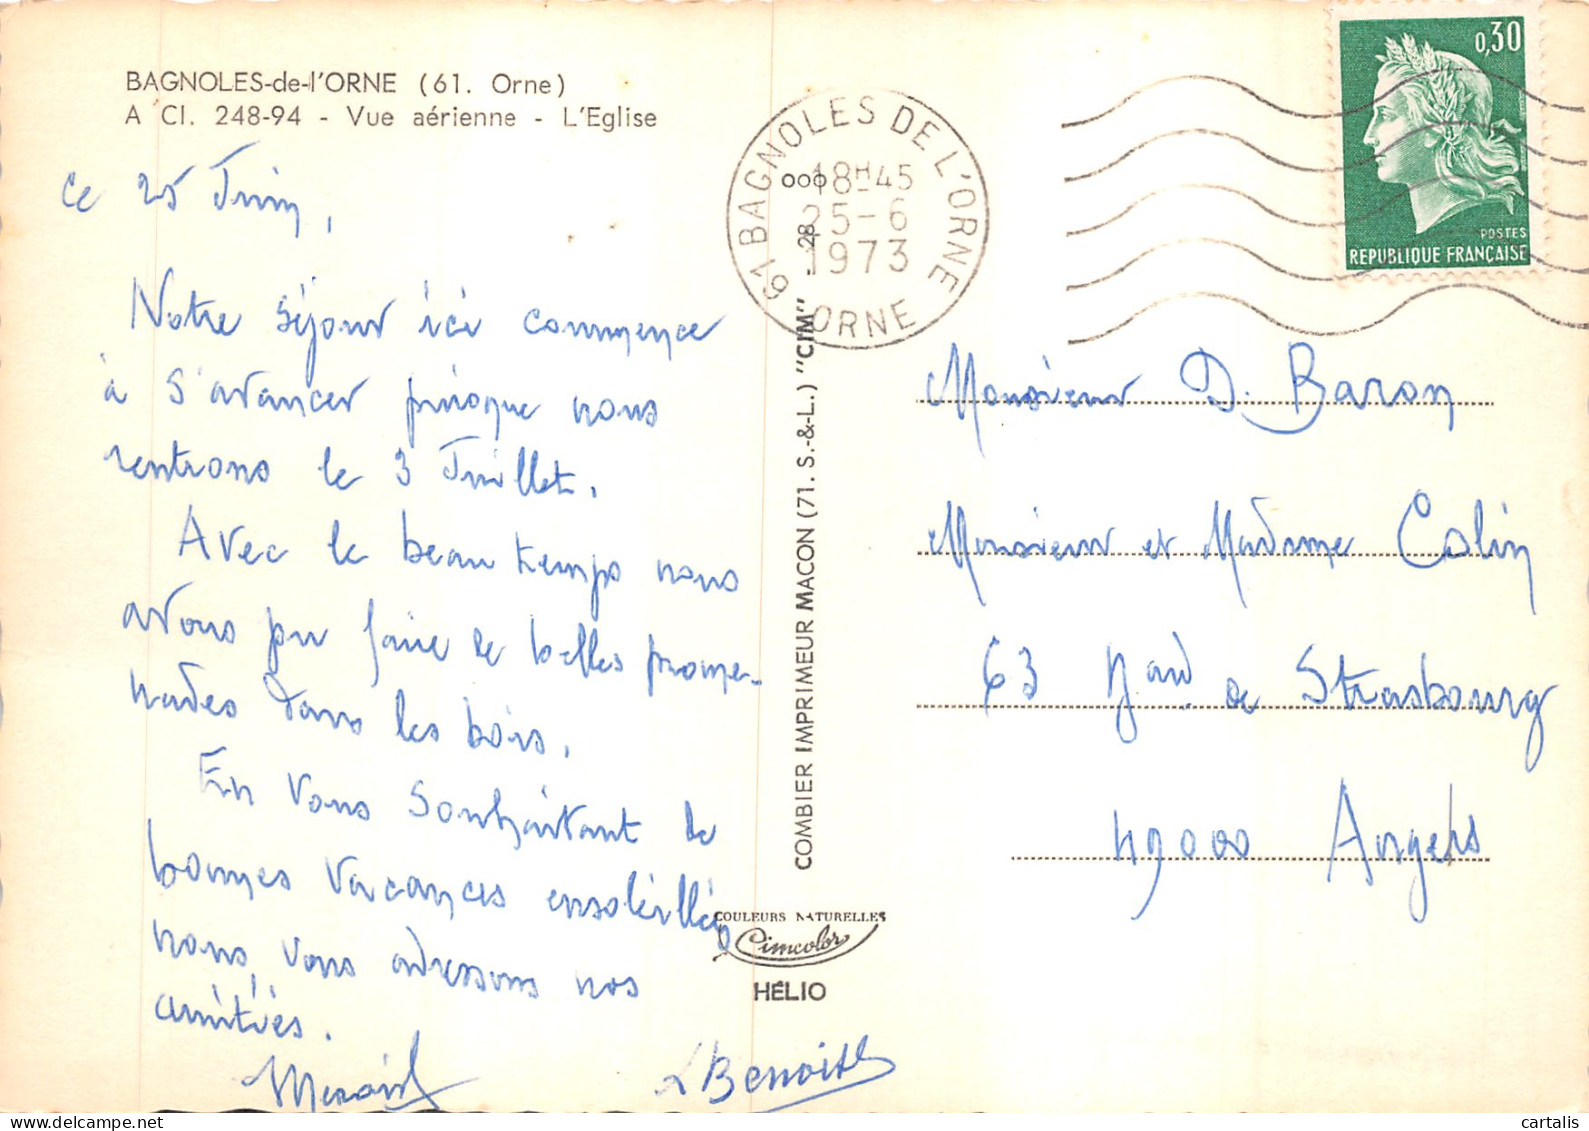 BAGNOLES-de-l'ORNE (61. Orne)
A Cl. 248-94 - Vue aérienne - L'Eglise
Ce 25 Juin,
Notre séjour ici commence
à s'avancer puisque nous
rentrons le 3 Juillet.
Avec le beau temps nous
avons pu faire de belles prome-
nades dans les bois.
En vous souhaitant de
bonnes vacances ensoleillées
nous vous adressons nos
amitiés.
LBenoist
COMBIER IMPRIMEUR MACON (71. S.-&-L.) "CIM" - 28
COULEURS NATURELLES
Cimcolor
HÉLIO
61 BAGNOLES DE L'ORNE
18H45
25-6
1973
ORNE
0,30
POSTES
REPUBLIQUE FRANÇAISE
Monsieur D. Baron
Monsieur et Madame Colin
63 de Strasbourg
49000 Angers
© cartalis
www.delcampe.net